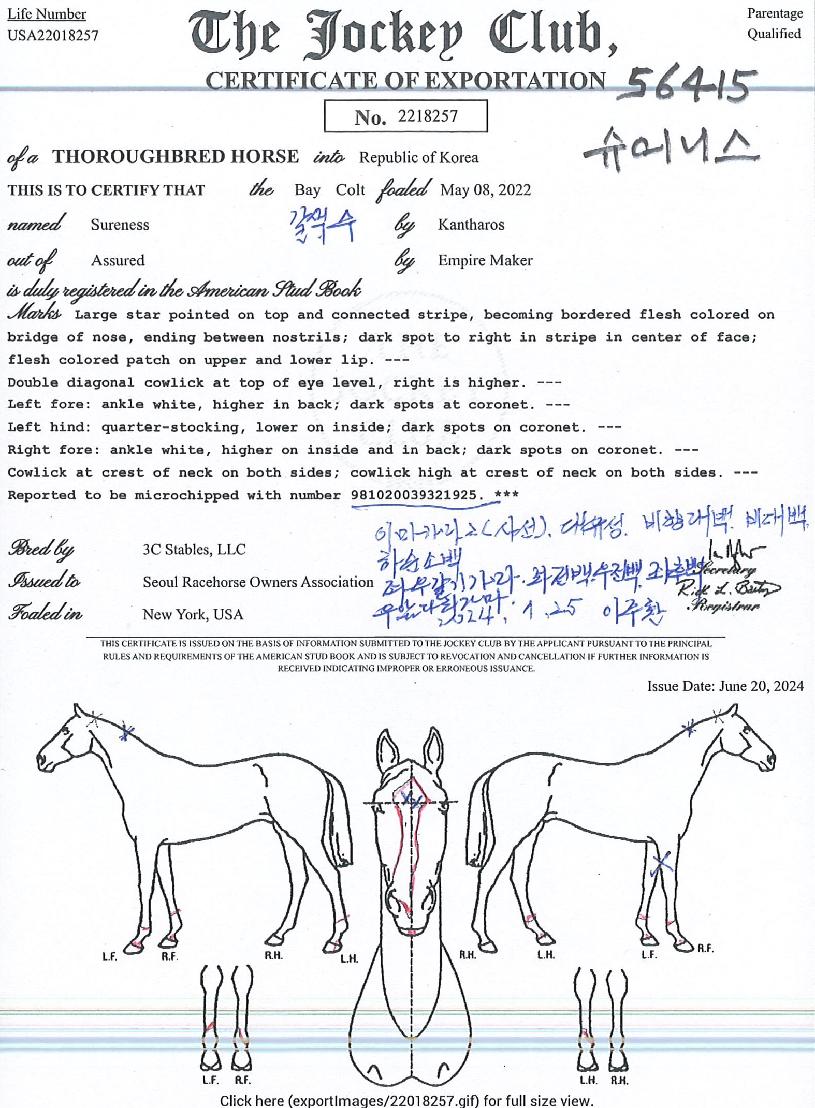 Life Number
USA22018257
The Jockey Club,
Parentage
Qualified
CERTIFICATE OF EXPORTATION
56415
No. 2218257
슈어니스
of a THOROUGHBRED HORSE into Republic of Korea
THIS IS TO CERTIFY THAT the Bay Colt foaled May 08, 2022
named Sureness 갈색 수 by Kantharos
out of Assured by Empire Maker
is duly registered in the American Stud Book
Marks Large star pointed on top and connected stripe, becoming bordered flesh colored on
bridge of nose, ending between nostrils; dark spot to right in stripe in center of face;
flesh colored patch on upper and lower lip. ---
Double diagonal cowlick at top of eye level, right is higher. ---
Left fore: ankle white, higher in back; dark spots at coronet. ---
Left hind: quarter-stocking, lower on inside; dark spots on coronet. ---
Right fore: ankle white, higher on inside and in back; dark spots on coronet. ---
Cowlick at crest of neck on both sides; cowlick high at crest of neck on both sides. ---
Reported to be microchipped with number 981020039321925. ***
이마가마2(사선). 대유성. 비량대백. 비대백
하순소백
Bred by 3C Stables, LLC
Secretary
Issued to Seoul Racehorse Owners Association
좌우갈기가마. 좌전백
Registrar
Foaled in New York, USA
2024. 1. 25 이주환
THIS CERTIFICATE IS ISSUED ON THE BASIS OF INFORMATION SUBMITTED TO THE JOCKEY CLUB BY THE APPLICANT PURSUANT TO THE PRINCIPAL
RULES AND REQUIREMENTS OF THE AMERICAN STUD BOOK AND IS SUBJECT TO REVOCATION AND CANCELLATION IF FURTHER INFORMATION IS
RECEIVED INDICATING IMPROPER OR ERRONEOUS ISSUANCE.
Issue Date: June 20, 2024
L.F. R.F. R.H. L.H. R.H. L.H. L.F. R.F.
L.F. R.F. L.H. R.H.
Click here (exportImages/22018257.gif) for full size view.